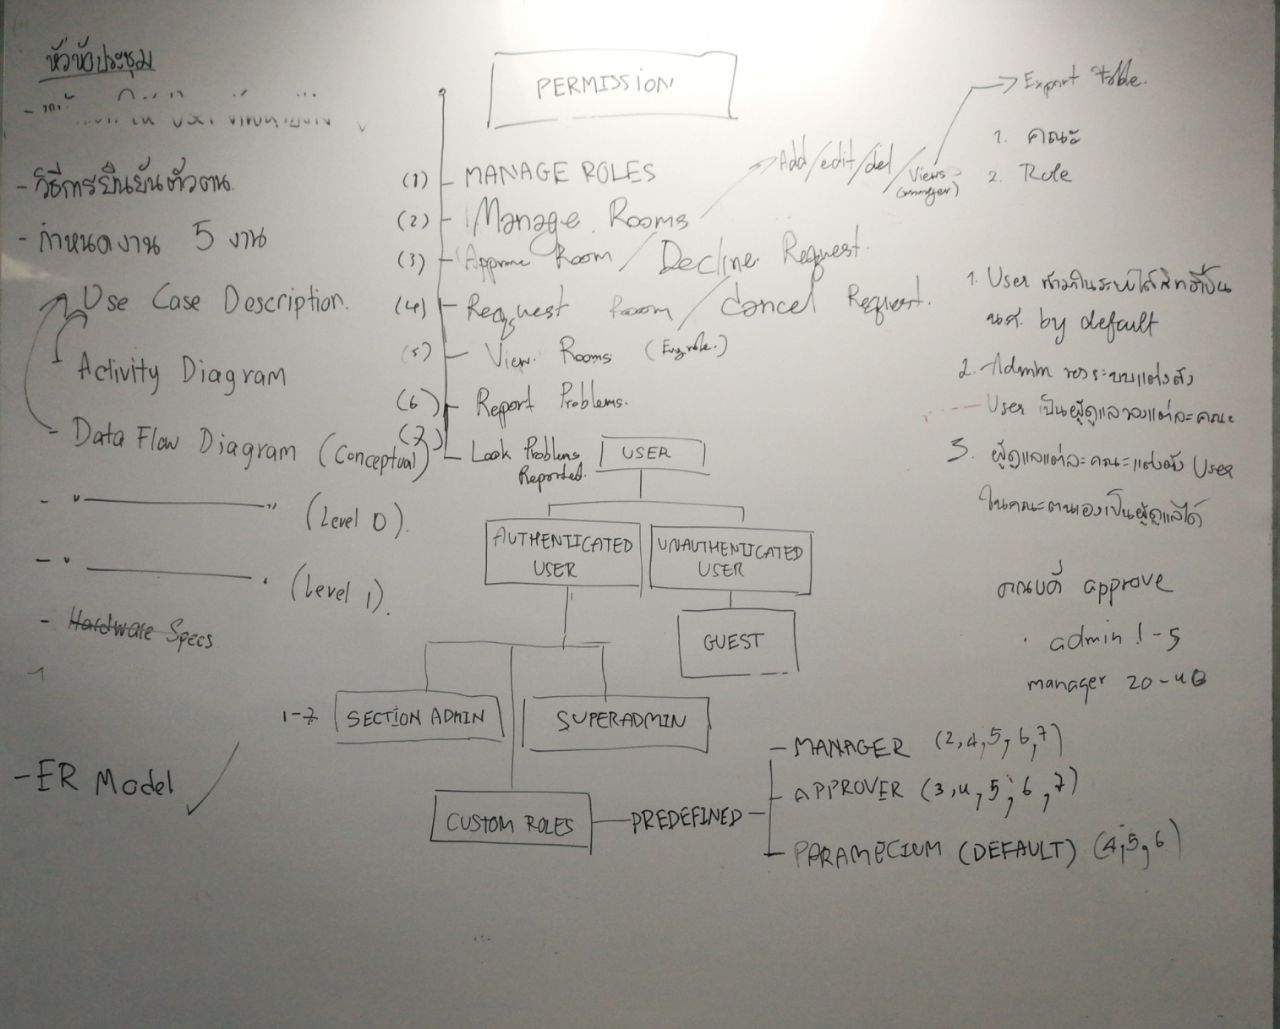 หัวข้อประชุม
- วิธีการยืนยันตัวตน.
- กำหนดงาน 5 งาน
Use Case Description.
Activity Diagram
- Data Flow Diagram (Conceptual)
- " ———— " (Level 0).
- " ———— " (Level 1).
- Hardware Specs
- ER Model ✓
PERMISSION
(1) - MANAGE ROLES
(2) - Manage Rooms
Add/edit/del/Views
(manager)
Export table.
1. คณะ
2. Role
(3) - Approve Room / Decline Request.
(4) - Request Room / Cancel Request.
(5) - View Rooms
(6) - Report Problems.
(7) - Look Problems
Reported.
USER
AUTHENTICATED
USER
UNAUTHENTICATED
USER
GUEST
1-7 SECTION ADMIN
SUPERADMIN
CUSTOM ROLES
PREDEFINED
- MANAGER (2,4,5,6,7)
- APPROVER (3,4,5,6,7)
- PARAMECIUM (DEFAULT) (4,5,6)
1. User เข้ามาในระบบได้สิทธิ์เป็น
นศ. by default
2. Admin ของระบบแต่งตั้ง
User เป็นผู้ดูแลของแต่ละคณะ
3. ผู้ดูแลแต่ละคณะแต่งตั้ง User
ในคณะตนเองเป็นผู้ดูแลได้
คณบดี approve
admin 1-5
manager 20-40